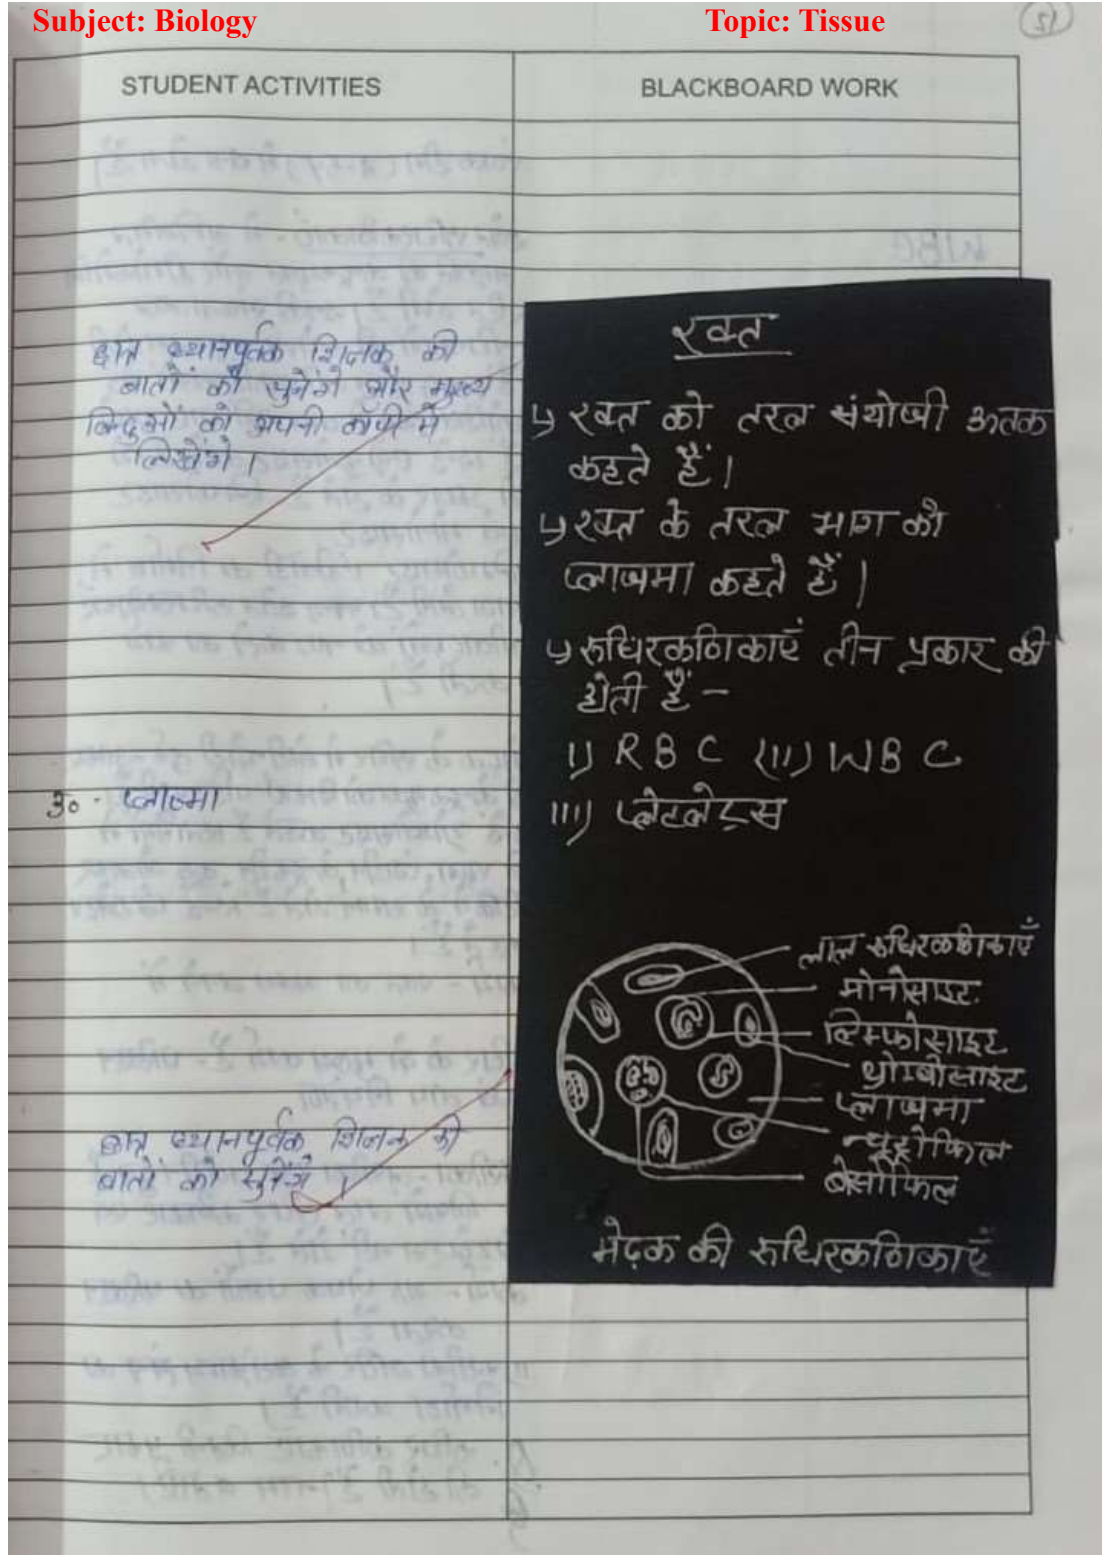 Subject: Biology
Topic: Tissue
STUDENT ACTIVITIES
BLACKBOARD WORK
छात्र ध्यानपूर्वक शिक्षक की
बातों को सुनेंगे और मुख्य
बिन्दुओं को अपनी कॉपी में
लिखेंगे।
उ० - प्लाज्मा
छात्र ध्यानपूर्वक शिक्षक की
बातों को सुनेंगे।
रक्त
रक्त को तरल संयोजी ऊतक
कहते हैं।
रक्त के तरल भाग को
प्लाज्मा कहते हैं।
रुधिरकणिकाएँ तीन प्रकार की
होती हैं -
I) RBC (II) WBC
III) प्लेटलेट्स
लाल रुधिरकणिकाएँ
मोनोसाइट
लिम्फोसाइट
थ्रोम्बोसाइट
प्लाज्मा
न्यूट्रोफिल
बेसोफिल
मेढ़क की रुधिरकणिकाएँ